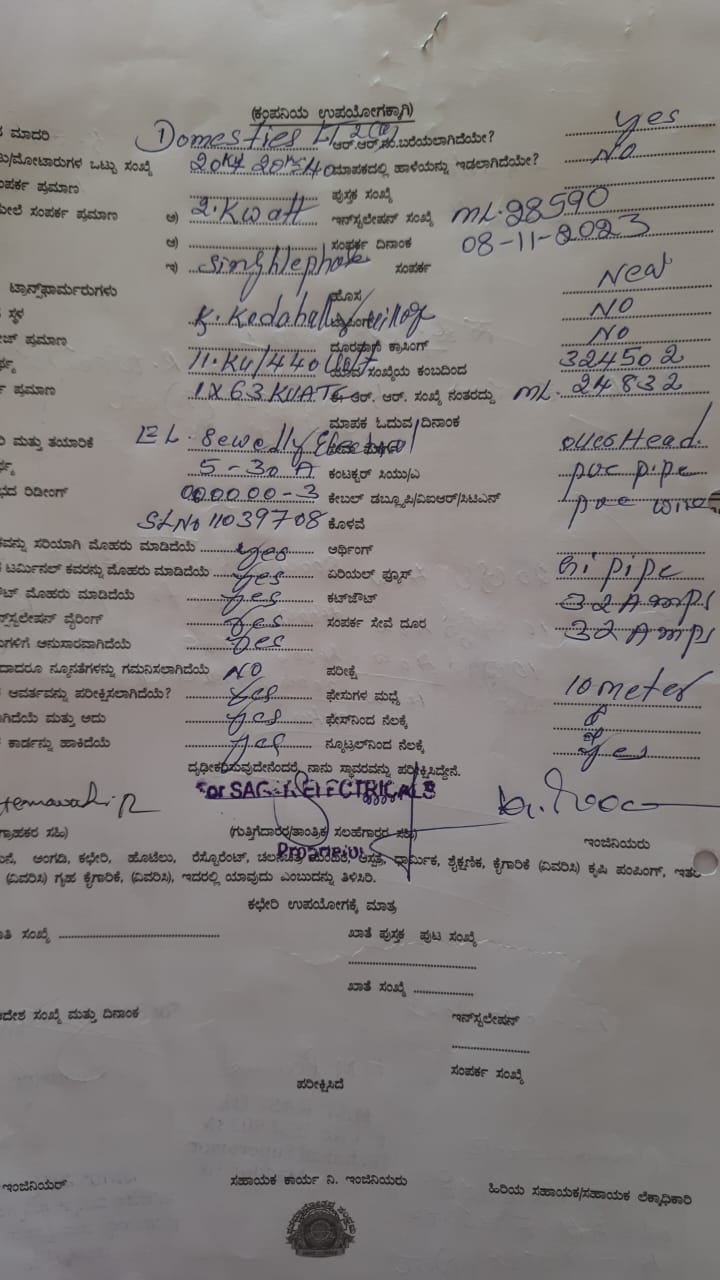 (ಕಂಪನಿಯ ಉಪಯೋಗಕ್ಕಾಗಿ)
ಮಾದರಿ Domesties LT 2(a) ಆರ್.ಆರ್.ನಂ.ಬರೆಯಲಾಗಿದೆಯೇ? yes
/ಮೋಟಾರುಗಳ ಒಟ್ಟು ಸಂಖ್ಯೆ ಮಾಪಕದಲ್ಲಿ ಹಾಳೆಯನ್ನು ಇಡಲಾಗಿದೆಯೇ? NO
ಸಂಪರ್ಕ ಪ್ರಮಾಣ ಪುಸ್ತಕ ಸಂಖ್ಯೆ
ಮೇಲೆ ಸಂಪರ್ಕ ಪ್ರಮಾಣ ಅ) 2.Kwatt ಇನ್‌ಸ್ಟಲೇಷನ್ ಸಂಖ್ಯೆ ML.28590
ಆ) ಸಂಪರ್ಕ ದಿನಾಂಕ 08-11-2023
ಇ) Singhlephase ಸಂಪರ್ಕ
ಟ್ರಾನ್ಸ್‌ಫಾರ್ಮರುಗಳು ಹೊಸ New
ಸ್ಥಳ K.Kodahally NO
ಪ್ರಮಾಣ ದೂರವಾಣಿ ಕ್ರಾಸಿಂಗ್ NO
11.KV/440 ಯಾವ ಸಂಖ್ಯೆಯ ಕಂಬದಿಂದ 324502
ಪ್ರಮಾಣ 1X63KVA ಈ. ಆರ್. ಆರ್. ಸಂಖ್ಯೆ ನಂತರದ್ದು ML.24832
ಮಾಪಕ ಓದುವ ದಿನಾಂಕ
ಮತ್ತು ತಯಾರಿಕೆ EL.Sewedly Electrical overHead.
5-30 A ಕಂಟಕ್ಟರ್ ಸಿಯು/ಎ pvc pipe
ರಿಡೀಂಗ್ 000000-3 ಕೇಬಲ್ ಡಬ್ಲೂಪಿ/ವಿಐಆರ್/ಸಿಟಿಎನ್ pvc wire
SLNo 11039708 ಕೊಳವೆ
ಸರಿಯಾಗಿ ಮೊಹರು ಮಾಡಿದೆಯೆ yes ಆರ್ಥಿಂಗ್
ಟರ್ಮಿನಲ್ ಕವರನ್ನು ಮೊಹರು ಮಾಡಿದೆಯೆ yes ಏರಿಯಲ್ ಫ್ಯೂಸ್ Gi pipe
ಮೊಹರು ಮಾಡಿದೆಯೆ yes ಕಟ್‌ಔಟ್ 32Amps
ವೈರಿಂಗ್ yes ಸಂಪರ್ಕ ಸೇವೆ ದೂರ 32Amps
ಅನುಸಾರವಾಗಿದೆಯೆ yes
ನ್ಯೂನತೆಗಳನ್ನು ಗಮನಿಸಲಾಗಿದೆಯೆ NO ಪರೀಕ್ಷೆ
ಆವರ್ತವನ್ನು ಪರೀಕ್ಷಿಸಲಾಗಿದೆಯೆ? yes ಫೇಸುಗಳ ಮಧ್ಯೆ 10meter
ಮತ್ತು ಅದು yes ಫೇಸ್‌ನಿಂದ ನೆಲಕ್ಕೆ
ಕಾರ್ಡನ್ನು ಹಾಕಿದೆಯೆ yes ನ್ಯೂಟ್ರಲ್‌ನಿಂದ ನೆಲಕ್ಕೆ yes
ದೃಢೀಕರಿಸುವುದೇನೆಂದರೆ, ನಾನು ಸ್ಥಾವರವನ್ನು ಪರೀಕ್ಷಿಸಿದ್ದೇನೆ.
For ELECTRICALS
ಗ್ರಾಹಕರ ಸಹಿ) (ಗುತ್ತಿಗೆದಾರರ/ತಾಂತ್ರಿಕ ಸಲಹೆಗಾರರ ಸಹಿ) ಇಂಜಿನಿಯರು
Proprietor
ಅಂಗಡಿ, ಕಛೇರಿ, ಹೊಟೆಲು, ರೆಸ್ಟೋರೆಂಟ್, ಧಾರ್ಮಿಕ, ಶೈಕ್ಷಣಿಕ, ಕೈಗಾರಿಕೆ (ವಿವರಿಸಿ) ಕೃಷಿ ಪಂಪಿಂಗ್, ಇತರೆ
(ವಿವರಿಸಿ) ಗೃಹ ಕೈಗಾರಿಕೆ, (ವಿವರಿಸಿ), ಇದರಲ್ಲಿ ಯಾವುದು ಎಂಬುದನ್ನು ತಿಳಿಸಿರಿ.
ಕಛೇರಿ ಉಪಯೋಗಕ್ಕೆ ಮಾತ್ರ
ಸಂಖ್ಯೆ ಖಾತೆ ಪುಸ್ತಕ ಪುಟ ಸಂಖ್ಯೆ
ಖಾತೆ ಸಂಖ್ಯೆ
ಆದೇಶ ಸಂಖ್ಯೆ ಮತ್ತು ದಿನಾಂಕ ಇನ್‌ಸ್ಟಲೇಷನ್
ಸಂಪರ್ಕ ಸಂಖ್ಯೆ
ಪರೀಕ್ಷಿಸಿದೆ
ಇಂಜಿನಿಯರ್ ಸಹಾಯಕ ಕಾರ್ಯ ನಿ. ಇಂಜಿನಿಯರು ಹಿರಿಯ ಸಹಾಯಕ/ಸಹಾಯಕ ಲೆಕ್ಕಾಧಿಕಾರಿ